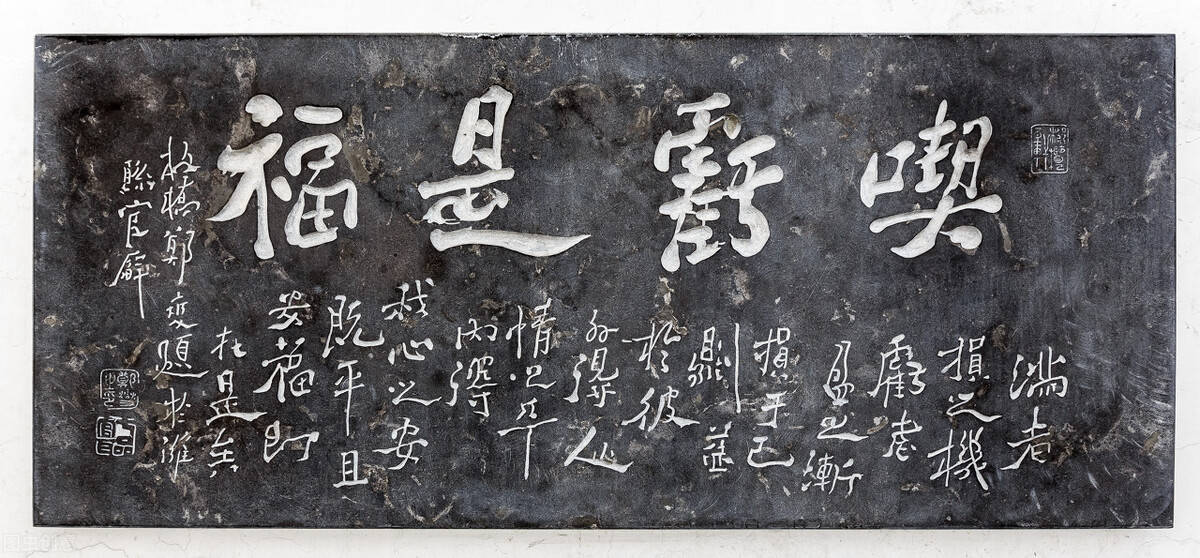 喫虧是福
滿者
損之機
虧者
盈之漸
損于己
則益
於彼
外得人
情之平
內得
我心之安
既平且
安福即
在是矣
板橋鄭燮題於濰
縣官廨
图虫创意